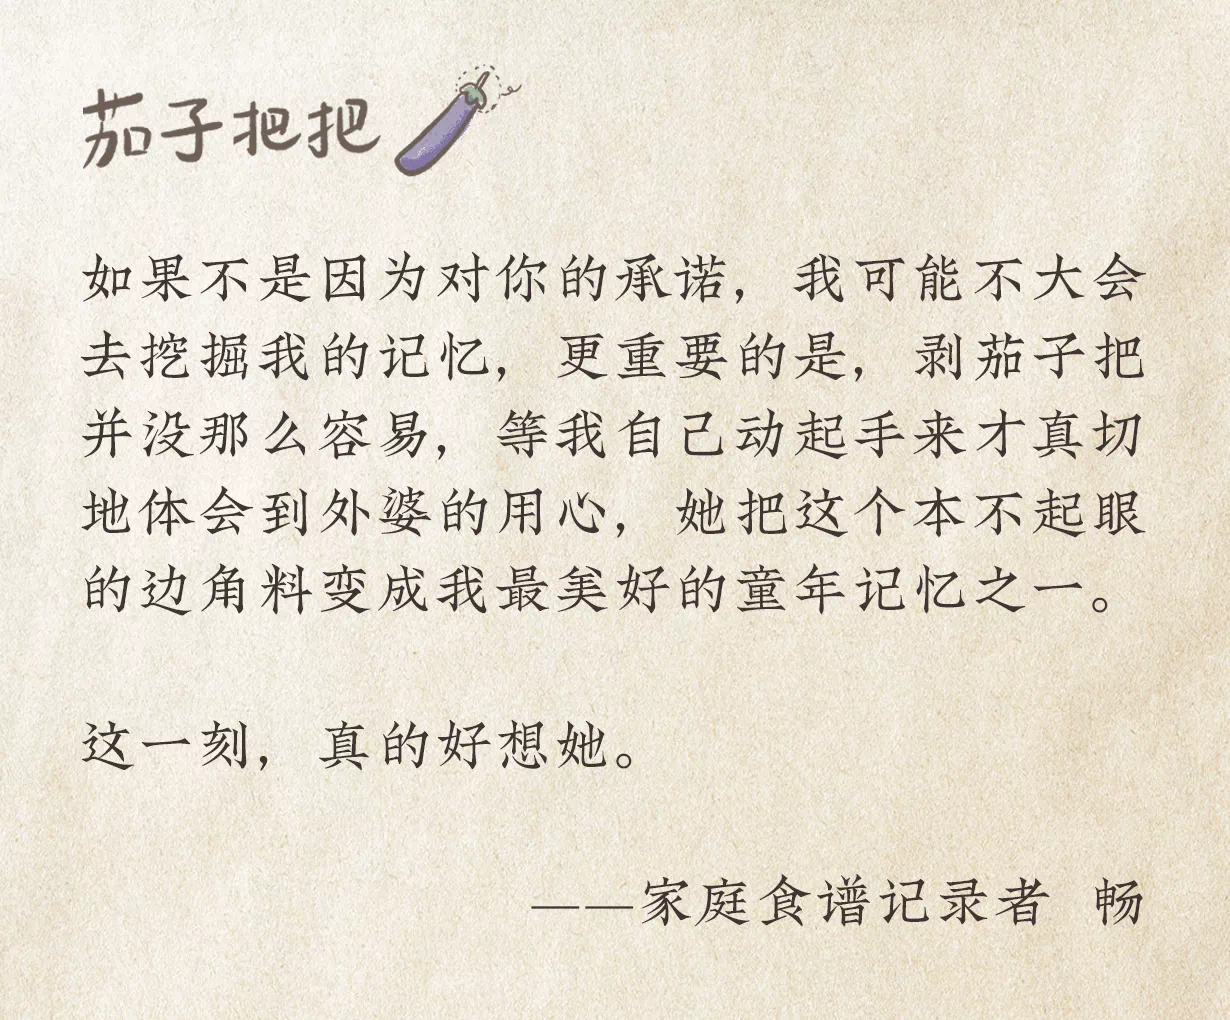 茄子把把
如果不是因为对你的承诺，我可能不大会
去挖掘我的记忆，更重要的是，剥茄子把
并没那么容易，等我自己动起手来才真切
地体会到外婆的用心，她把这个本不起眼
的边角料变成我最美好的童年记忆之一。
这一刻，真的好想她。
——家庭食谱记录者 畅